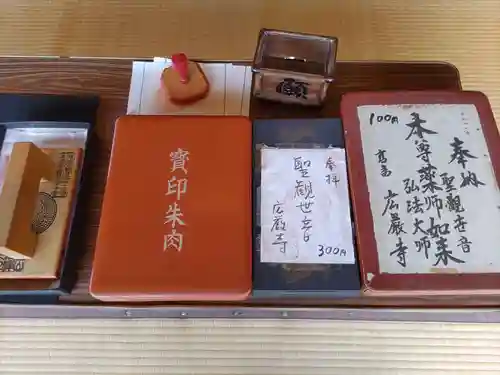 願
寳印朱肉
奉拝
聖観世音
広巌寺
300円
100円
奉納
聖観世音
本尊薬師如来
弘法大師
広巌寺